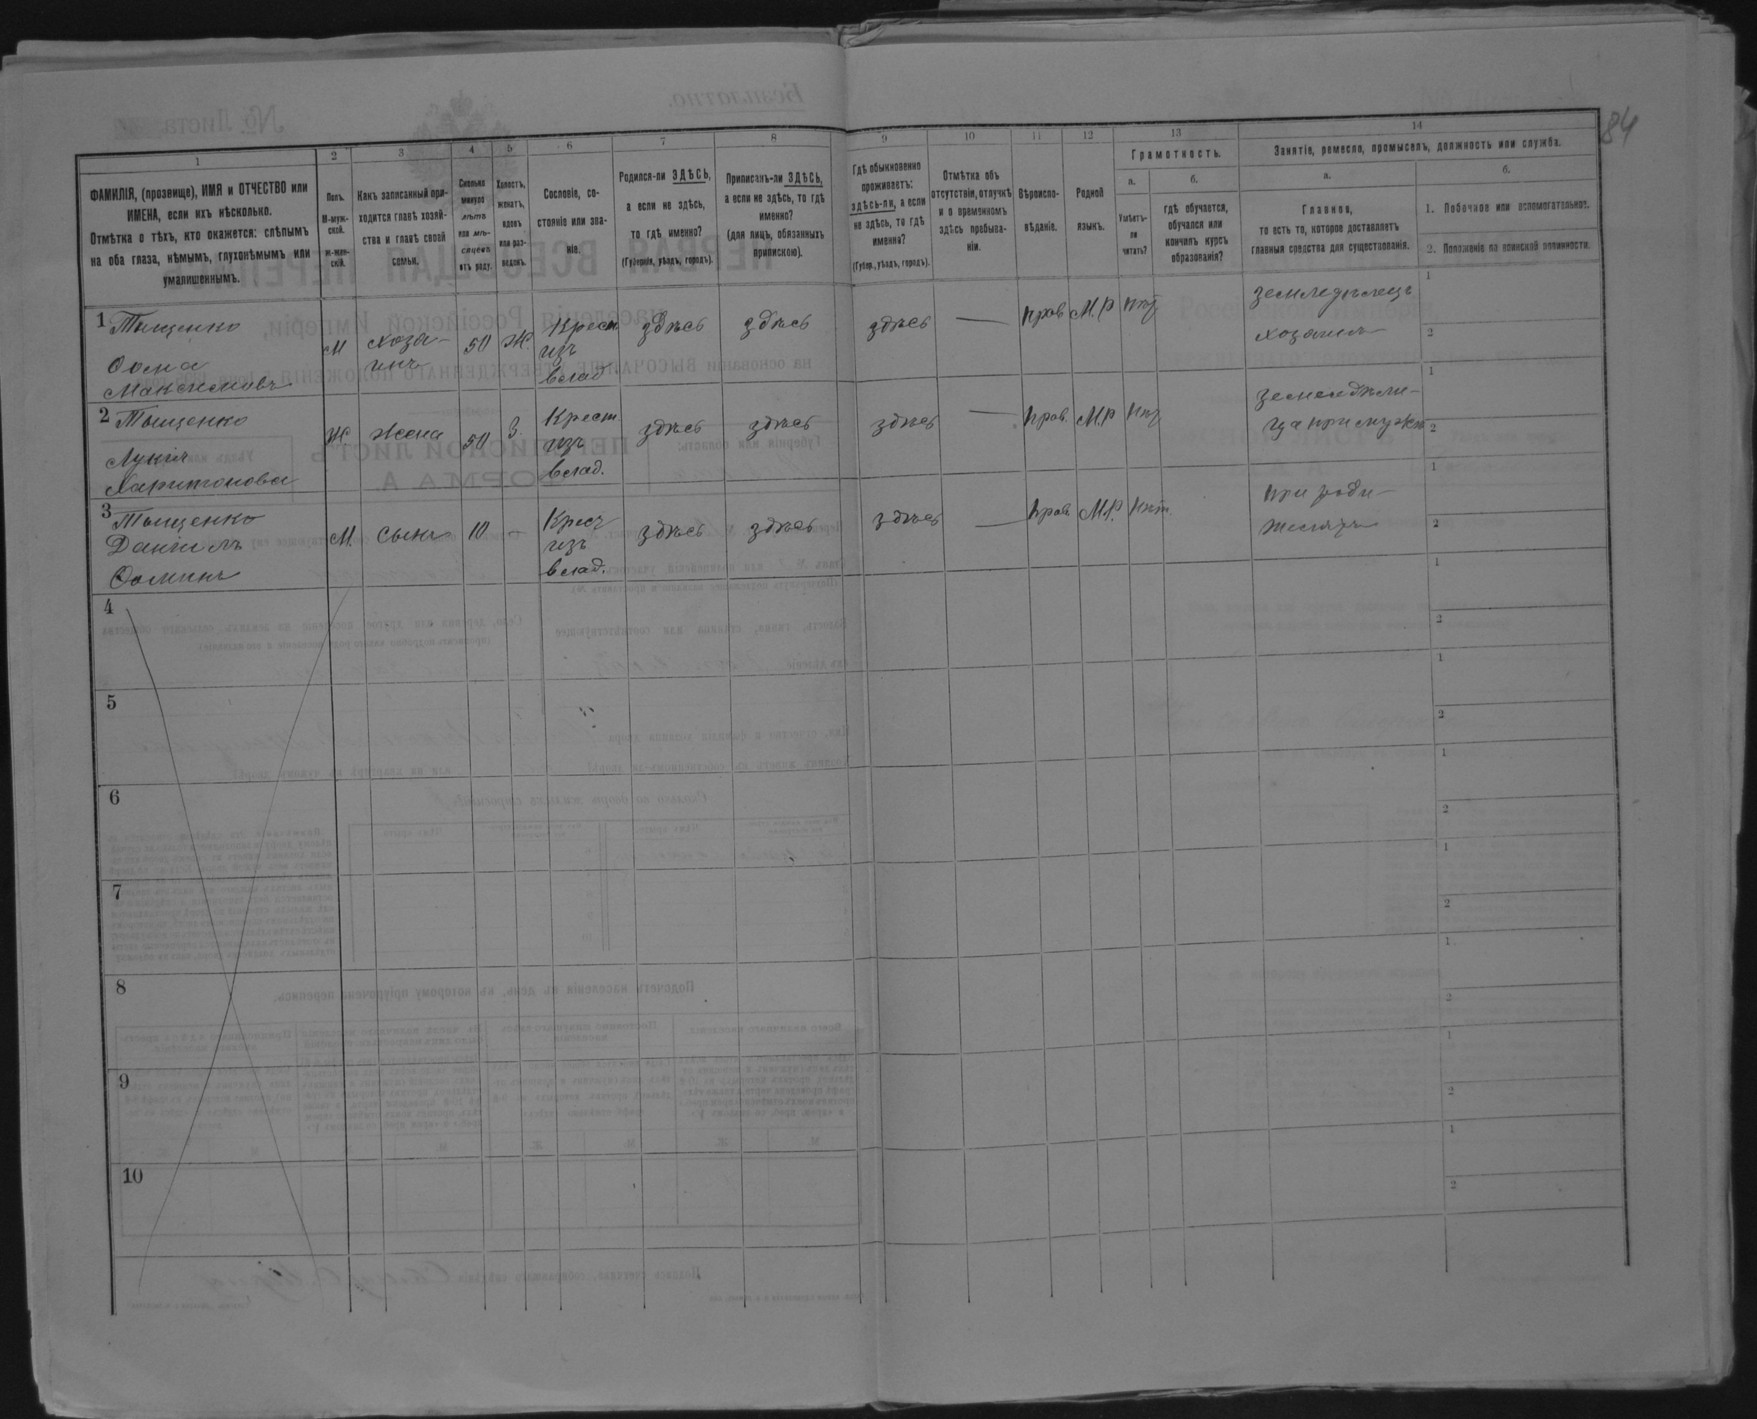 84
1 2 3 4 5 6 7 8 9 10 11 12 13 14
ФАМИЛІЯ, (прозвище), ИМЯ и ОТЧЕСТВО или
ИМЕНА, если ихъ нѣсколько.
Отмѣтка о тѣхъ, кто окажется: слѣпымъ
на оба глаза, нѣмымъ, глухонѣмымъ или
умалишеннымъ.
Полъ.
М-муж-
ской.
Ж-жен-
скій.
Какъ записанный при-
ходится главѣ хозяй-
ства и главѣ своей
семьи.
Сколько
минуло
лѣтъ
или мѣ-
сяцевъ
отъ роду.
Холостъ,
женатъ,
вдовъ
или раз-
веденъ.
Сословіе, со-
стояніе или зва-
ніе.
Родился-ли ЗДѢСЬ,
а если не здѣсь,
то гдѣ именно?
(Губернія, уѣздъ, городъ).
Приписанъ-ли ЗДѢСЬ,
а если не здѣсь, то гдѣ
именно?
(для лицъ, обязанныхъ
припискою).
Гдѣ обыкновенно
проживаетъ:
здѣсь-ли, а если
не здѣсь, то гдѣ
именно?
(Губер., уѣздъ, городъ).
Отмѣтка объ
отсутствіи, отлучкѣ
и о временномъ
здѣсь пребыва-
ніи.
Вѣроиспо-
вѣданіе.
Родной
языкъ.
Грамотность.
а.
Умѣетъ-
ли
читать?
б.
гдѣ обучается,
обучался или
кончилъ курсъ
образованія?
Занятіе, ремесло, промыселъ, должность или служба.
а.
Главное,
то есть то, которое доставляетъ
главныя средства для существованія.
б.
1. Побочное или вспомогательное.
2. Положеніе по воинской повинности.
1 Тыщенко
Ѳома
Максимовъ
М
хозя-
инъ
50
Ж.
Крест
изъ
влад
здѣсь
здѣсь
здѣсь
—
прав
М.Р
нѣт
земледѣлецъ
хозяинъ
1
2
2 Тыщенко
Лукія
Харитонова
Ж
жена
50
З.
Крест
изъ
влад.
здѣсь
здѣсь
здѣсь
—
прав.
М.Р
нѣт
земледѣли-
ца при мужѣ
1
2
3 Тыщенко
Даніилъ
Ѳоминъ
М.
сынъ
10
—
Крест
изъ
влад.
здѣсь
здѣсь
здѣсь
—
прав
М.Р.
нѣт.
при роди-
теляхъ
1
2
4
1
2
5
1
2
6
1
2
7
1
2
8
1
2
9
1
2
10
1
2